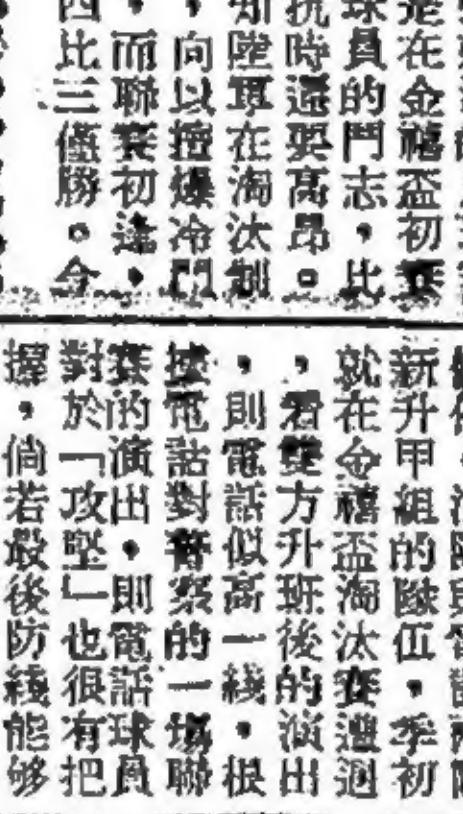 是在金禧盃初賽
球員的鬥志，比
抗時還要高昂。
知陸軍在淘汰制
，向以擅爆冷門
，而聯賽初逢，
四比三僅勝。今
新升甲組的隊伍，季初
就在金禧盃淘汰賽遭遇
，看雙方升班後的演出
，則電話似高一綫，根
據電話對警察的一場聯
賽的演出，則電話球員
對於「攻堅」也很有把
握，倘若最後防綫能够